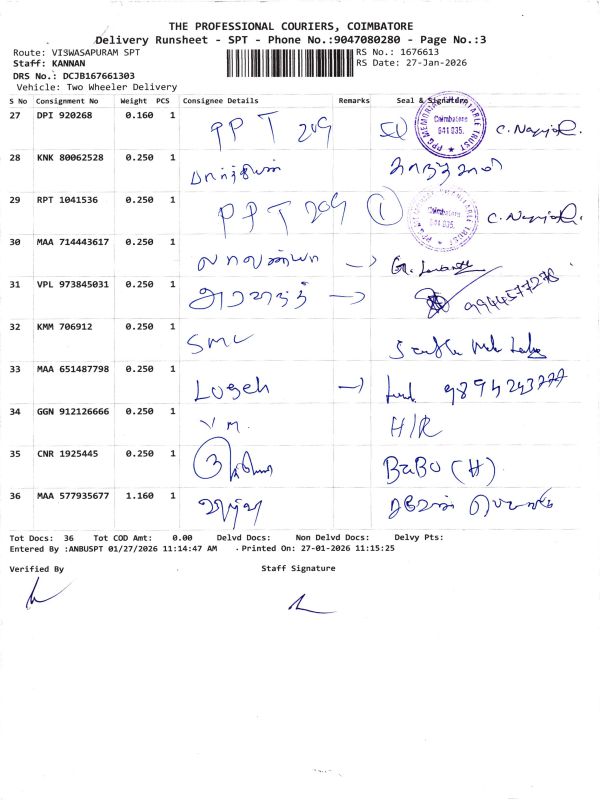 THE PROFESSIONAL COURIERS, COIMBATORE
Delivery Runsheet - SPT - Phone No.:9047080280 - Page No.:3
Route: VISWASAPURAM SPT
RS No.: 1676613
Staff: KANNAN
RS Date: 27-Jan-2026
DRS No.: DCJB167661303
Vehicle: Two Wheeler Delivery
S No Consignment No Weight PCS Consignee Details Remarks Seal & Signature
27 DPI 920268 0.160 1 PPT 209
PPG MEMORIAL CHARITABLE TRUST Coimbatore 641 035.
28 KNK 80062528 0.250 1
29 RPT 1041536 0.250 1 PPT 209 1
Coimbatore 641 035.
30 MAA 714443617 0.250 1 லாவண்யா →
31 VPL 973845031 0.250 1 அரவிந்த் → 9944577278
32 KMM 706912 0.250 1 SMC
33 MAA 651487798 0.250 1 Logesh →
34 GGN 912126666 0.250 1 V M. H/R
35 CNR 1925445 0.250 1 BaBU (H)
36 MAA 577935677 1.160 1
Tot Docs: 36 Tot COD Amt: 0.00 Delvd Docs: Non Delvd Docs: Delvy Pts:
Entered By :ANBUSPT 01/27/2026 11:14:47 AM . Printed On: 27-01-2026 11:15:25
Verified By Staff Signature